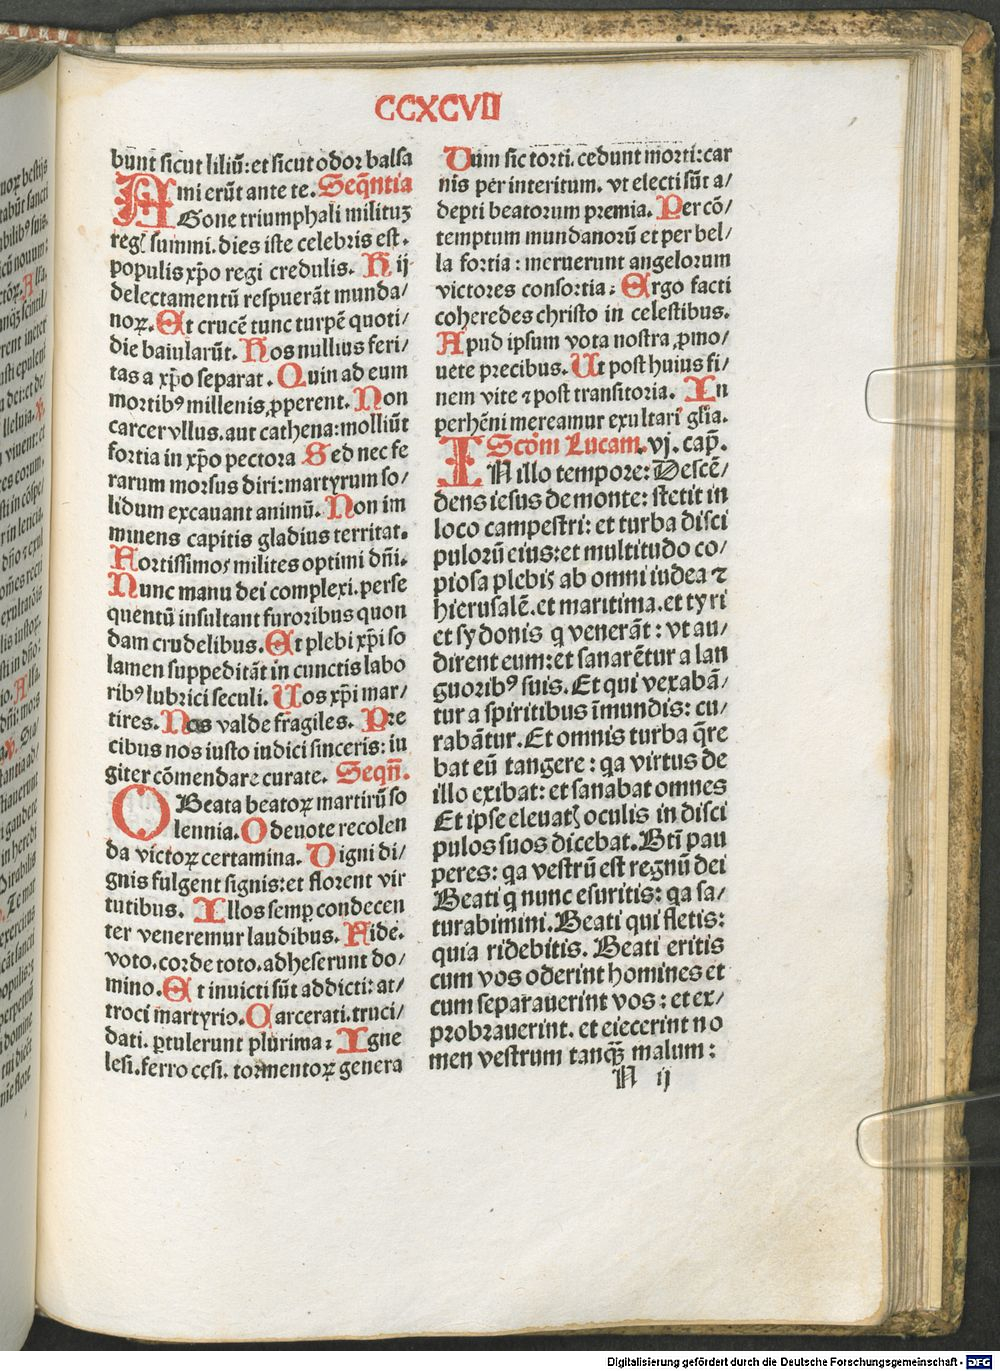 CCXCVII
bunt sicut liliū: et sicut odor balsa
mi erūt ante te. Seq̄ntia
AGone triumphali milituꝫ
regꝭ summi. dies iste celebris est.
populis xp̄o regi credulis. Hij
delectamentū respuerāt munda/
noꝝ. Et crucē tunc turpē quoti/
die baiularūt. Hos nullius feri/
tas a xp̄o separat. Quin ad eum
mortibꝰ millenis ꝓperent. Non
carcer vllus. aut cathena: molliūt
fortia in xp̄o pectora Sed nec fe
rarum morsus diri: martyrum so/
lidum excauant animū. Non im
minens capitis gladius territat.
Fortissimos milites optimi dn̄i.
Nunc manu dei complexi. perse
quentū insultant furoribus quon
dam crudelibus. Et plebi xp̄i so
lamen suppeditāt in cunctis labo
ribꝰ lubrici seculi. Uos xp̄i mar/
tires. Nos valde fragiles. Pre
cibus nos iusto iudici sinceris: iu
giter cōmendare curate. Seqn̄.
O Beata beatoꝝ martirū so
lennia. O deuote recolen
da victoꝝ certamina. Digni di/
gnis fulgent signis: et florent vir
tutibus. Illos semꝑ condecen
ter veneremur laudibus. Fide.
voto. corde toto. adheserunt do/
mino. Et inuicti sūt addicti: at/
troci martyrio. Carcerati. truci/
dati. ꝑtulerunt plurima: Igne
lesi. ferro cęsi. tormentoꝝ genera
Dum sic torti. cedunt morti: car
nis per interitum. vt electi sūt a/
depti beatorum premia. Per cō/
temptum mundanorū et per bel/
la fortia: meruerunt angelorum
victores consortia: Ergo facti
coheredes christo in celestibus.
Apud ipsum vota nostra ꝓmo/
uete precibus. Ut post huius fi/
nem vite ⁊ post transitoria. In
perhēni mereamur exultari gl̄ia.
Scd̄m Lucam. vj. cap̄.
IN illo tempore: Descē/
dens iesus de monte: stetit in
loco campestri: et turba disci
pulorū eius: et multitudo co/
piosa plebis ab omni iudea ⁊
hierusalē. et maritima. et tyri
et sydonis q venerāt: vt au/
dirent eum: et sanarētur a lan
guoribꝰ suis. Et qui vexabā/
tur a spiritibus īmundis: cu/
rabātur. Et omnis turba q̄re
bat eū tangere: qa virtus de
illo exibat: et sanabat omnes
Et ipse eleuatꝭ oculis in disci
pulos suos dicebat. Bti̅ pau
peres: qa vestrū est regnū dei
Beati q nunc esuritis: qa sa/
turabimini. Beati qui fletis:
quia ridebitis. Beati eritis
cum vos oderint homines et
cum separauerint vos: et ex/
probrauerint. et eiecerint no
men vestrum tanqꝫ malum:
N ij
Digitalisierung gefördert durch die Deutsche Forschungsgemeinschaft - DFG